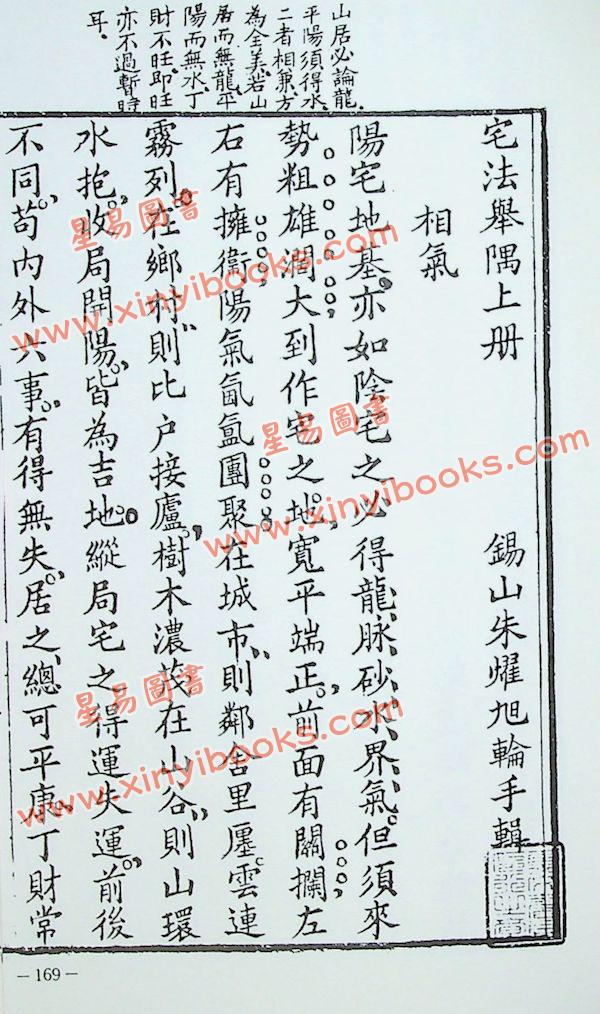 山居必論龍.
平陽須得水.
二者相兼.方
為全美.若山
居而無龍.平
陽而無水.丁
財不旺.即旺
亦不過暫時
耳。
宅法舉隅上册
錫山朱燿旭輪手輯
相氣
陽宅地基.亦如陰宅之必得龍、脉、砂、水、界、氣。但須來
勢粗雄濶大.到作宅之地。寬平端正。前面有關攔.左
右有擁衛.陽氣氤氳團聚.在城市.則鄰舍里廛。雲連
霧列。在鄉村.則比户接廬.樹木濃茂.在山谷.則山環
水抱。收局開陽。皆為吉地。縱局宅之得運失運。前後
不同。苟內外六事。有得無失。居之、總可平康。丁財常
星易圖書
www.xinyibooks.com
星易圖書
www.xinyibooks.com
星易圖書
www.xinyibooks.com
星易圖書
www.xinyibooks.com
－169－